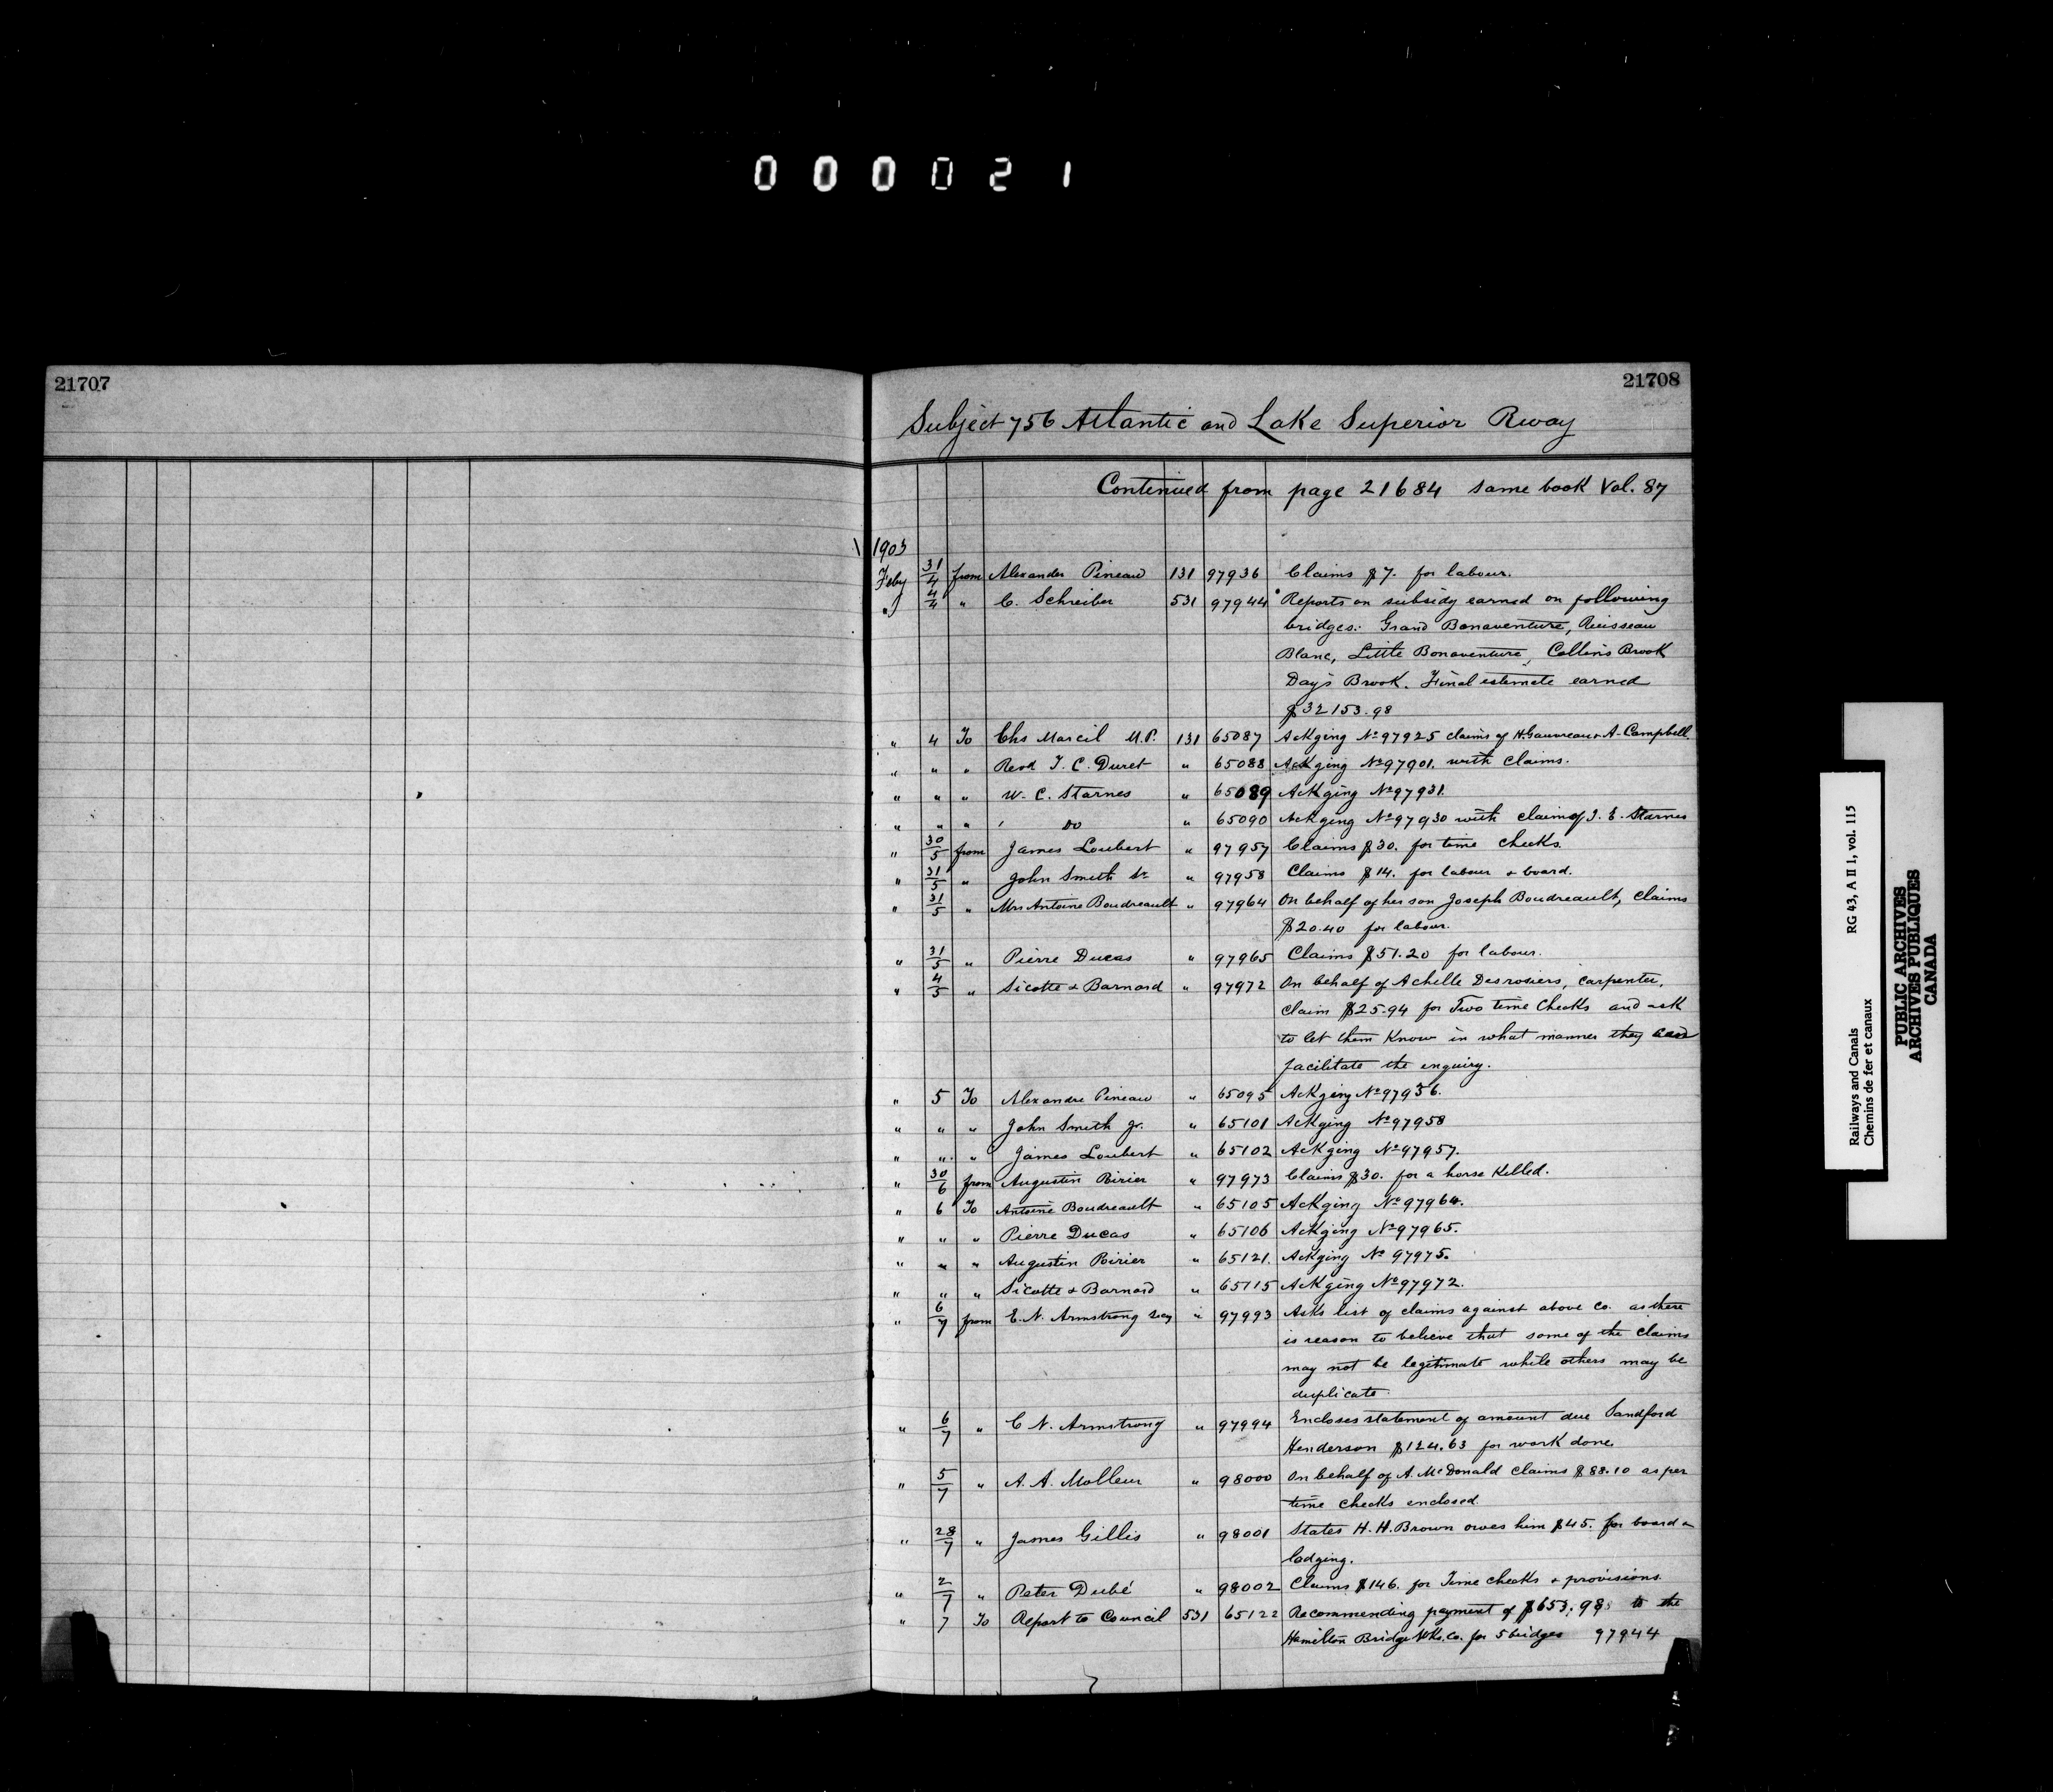 000021
21707
21708
Subject 756 Atlantic and Lake Superior Rway
Continued from page 21684 same book Vol. 87
1903
Feby 31/4 from Alexander Pineau 131 97936 Claims $7. for labour.
" 4/4 " C. Schreiber 531 97944 Reports on subsidy earned on following
bridges: Grand Bonaventure, Ruisseau
Blanc, Little Bonaventure, Collins Brook
Day's Brook. Final estimate earned
$32153.98
" 4 To Chs Marcil M.P. 131 65087 Ackging No 97925 claims of H. Gauvreau & A. Campbell.
" " " Revd J. C. Duret " 65088 Ackging No 97901. with claims.
" " " W. C. Starnes " 65089 Ackging No 97931.
" " " do " 65090 Ackging No 97930 with claim of J. E. Starnes
" 30/5 from James Loubert " 97957 Claims $30. for time checks.
" 31/5 " John Smith Sr " 97958 Claims $14. for labour & board.
" 31/5 " Mrs Antoine Boudreault " 97964 On behalf of her son Joseph Boudreault, claims
$20.40 for labour.
" 31/5 " Pierre Ducas " 97965 Claims $51.20 for labour.
" 4/5 " Sicotte & Barnard " 97972 On behalf of Achille Desrosiers, carpenter,
claim $25.94 for Two time checks and ask
to let them know in what manner they can
facilitate the enquiry.
" 5 To Alexandre Pineau " 65095 Ackging No 97936.
" " " John Smith Jr. " 65101 Ackging No 97958
" " " James Loubert " 65102 Ackging No 97957.
" 30/6 from Augustin Poirier " 97973 Claims $30. for a horse killed.
" 6 To Antoine Boudreault " 65105 Ackging No 97964.
" " " Pierre Ducas " 65106 Ackging No 97965.
" " " Augustin Poirier " 65121. Ackging No 97975.
" " " Sicotte & Barnard " 65115 Ackging No 97972.
" 6/7 from E. N. Armstrong secy " 97993 Asks list of claims against above Co. as there
is reason to believe that some of the claims
may not be legitimate while others may be
duplicate.
" 6/7 " C. N. Armstrong " 97994 Encloses statement of amount due Sandford
Henderson $124.63 for work done.
" 5/7 " A. A. Molleur " 98000 On behalf of A. McDonald claims $88.10 as per
time checks enclosed.
" 28/7 " James Gillis " 98001 States H. H. Brown owes him $45. for board &
lodging.
" 2/7 " Peter Dubé " 98002 Claims $146. for Time checks & provisions.
" 7 To Report to Council 531 65122 Recommending payment of $653.98 to the
Hamilton Bridge Wks. Co. for 5 bridges 97944
Railways and Canals RG 43, A II 1, vol. 115
Chemins de fer et canaux
PUBLIC ARCHIVES
ARCHIVES PUBLIQUES
CANADA